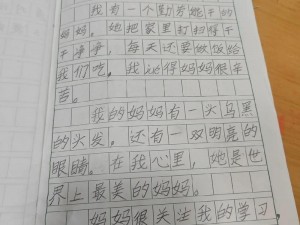 我有一个勤劳能干的
妈妈。她把家里打扫得干
干净净，每天还要做饭给
我们吃。我觉得妈妈很辛
苦。
我的妈妈有一头乌黑
的头发。还有一双明亮的
眼睛。在我心里，她是世
界上最美的妈妈。
妈妈很关注我的学习